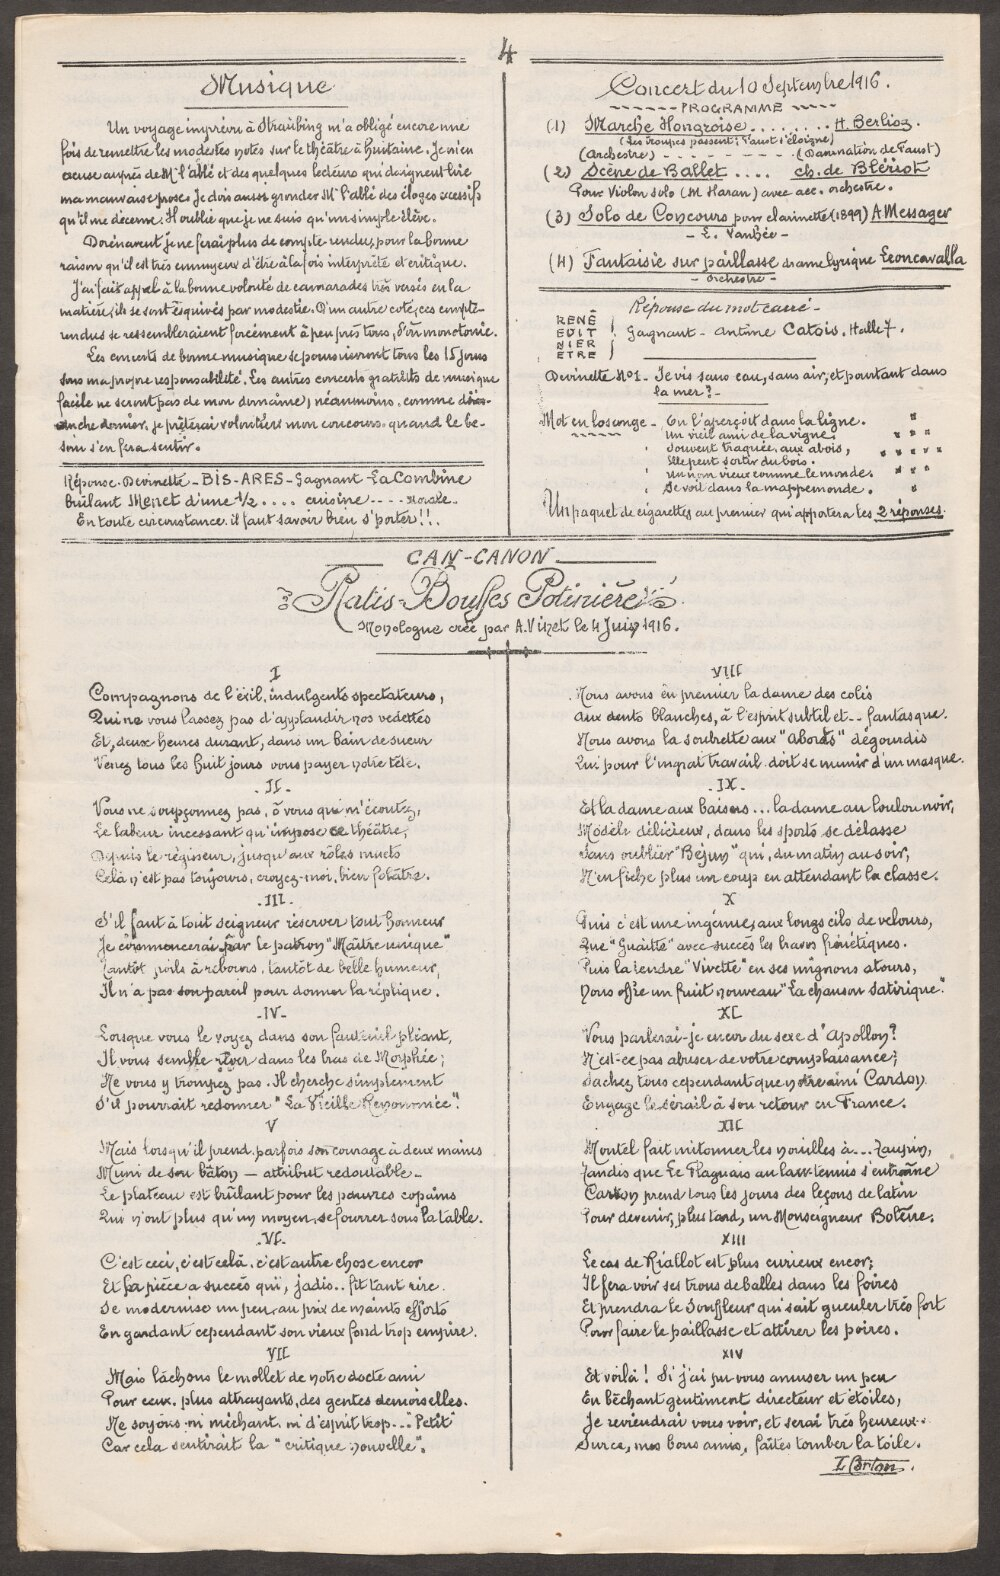 4
Musique
Un voyage imprévu à Straubing m'a obligé encore une
fois de remettre les modestes notes sur le théâtre à huitaine. Je m'en
excuse auprès de Mr l'abbé et des quelques lecteurs qui daignent lire
ma mauvaise prose. Je dois aussi gronder Mr l'abbé des éloges excessifs
qu'il me décerne. Il oublie que je ne suis qu'un simple élève.
Dorénavant je ne ferai plus de compte-rendus, pour la bonne
raison qu'il est très ennuyeux d'être à la fois interprète et critique.
J'ai fait appel à la bonne volonté de camarades très versés en la
matière; ils se sont esquivés par modestie. D'un autre coté, ces compte-
rendus se ressembleraient forcément à peu près tous, d'où monotonie.
Les concerts de bonne musique se poursuivront tous les 15 jours
sous ma propre responsabilité. Les autres concerts gratuits de musique
facile ne seront pas de mon domaine; néanmoins, comme dim-
anche dernier, je prêterai volontiers mon concours quand le be-
soin s'en fera sentir.
Réponse. Devinette - BIS-ARES - Gagnant - La Combine
brûlant Menet d'une 1/2 .... cuisine ----
En toute circonstance il faut savoir bien s'porter!!.
Concert du 10 Septembre 1916.
PROGRAMME
(1) Marche Hongroise ........ H. Berlioz.
(Les troupes passent; Faust s'éloigne)
(Orchestre) - - - - - - - - (Damnation de Faust)
(2) Scène de Ballet .... ch. de Blériot
Pour Violon solo (M Haran) avec acc. orchestre.
(3) Solo de Concours pour clarinette (1899) A Messager
- L. Vanhée -
(4) Fantaisie sur paillasse drame lyrique Leoncavalla
- Orchestre -
Réponse du mot carré -
RENÉ
EDIT
NIER
ETRE
Gagnant - Antime Catois. Halle 7.
Devinette No 1 - Je vis sans eau, sans air, et pourtant dans
la mer? -
Mot en losange - On l'aperçoit dans la ligne.
Un vieil ami de la vigne.
Souvent traquée, aux abois,
Elle peut sortir du bois.
Un nom vieux comme le monde.
Se voit dans la mappemonde.
Un paquet de cigarettes au premier qui apportera les 2 réponses.
CAN-CANON
Ratis-Bouffes Potinière
Monologue créé par A. Vinet le 4 Juin 1916.
I
Compagnons de l'éxil, indulgents spectateurs,
Qui ne vous lassez pas d'applaudir nos vedettes
Et, deux heures durant, dans un bain de sueur
Venez tous les huit jours vous payer notre tête.
II
Vous ne soupçonnez pas, ô vous qui m'écoutez,
Le labeur incessant qu'impose ce théâtre,
Depuis le régisseur, jusqu'aux rôles muets
Celà n'est pas toujours, croyez-moi, bien folâtre.
III
S'il faut à tout seigneur réserver tout honneur
Je commencerai par le patron "Maître unique"
Tantôt poils à rebours, tantôt de belle humeur,
Il n'a pas son pareil pour donner la réplique.
IV
Lorsque vous le voyez dans son fauteuil pliant,
Il vous semble rêver dans les bras de Morphée;
Ne vous y trompez pas. Il cherche simplement
S'il pourrait redonner "La Vieille Renommée".
V
Mais lorsqu'il prend parfois son courage à deux mains
Muni de son bâton — attribut redoutable -
Le plateau est brûlant pour les pauvres copains
Qui n'ont plus qu'un moyen, se fourrer sous la table.
VI
C'est ceci, c'est celà, c'est autre chose encor
Et sa pièce a succès qui, jadis.. fit tant rire.
Se modernise un peu, au prix de maints efforts
En gardant cependant son vieux fond trop empire.
VII
Mais lâchons le mollet de notre docte ami
Pour ceux, plus attrayants, des gentes demoiselles.
Ne soyons ni méchant, ni d'esprit trop... "Petit"
Car cela sentirait la "critique nouvelle".
VIII
Nous avons en premier la dame des colis
Aux dents blanches, à l'esprit subtil et.. fantasque.
Nous avons la soubrette aux "abords" dégourdis
Qui pour l'ingrat travail doit se munir d'un masque.
IX
Et la dame aux baisers... la dame au loulou noir,
Modèle délicieux, dans les sports se délasse
Sans oublier "Bejun" qui, du matin au soir,
N'en fiche plus un coup en attendant la classe.
X
Puis c'est une ingénue, aux longs cils de velours,
Que "Guaitte" avec succès les bravos frénétiques.
Puis la tendre "Vivette" en ses mignons atours,
Vous offre un fruit nouveau "La chanson satirique".
XI
Vous parlerai-je encor du sexe d'Apollon?
N'est-ce pas abuser de votre complaisance;
Sachez tous cependant que notre ami Cardon
Engage le sérail à son retour en France.
XII
Montel fait mitonner les nouilles à... Zaupin,
Tandis que Le Flaguais au lawn-tennis s'entraîne
Carton prend tous les jours des leçons de latin
Pour devenir, plus tard, un Monseigneur Bolène.
XIII
Le cas de Riallot est plus curieux encor;
Il fera voir ses trous de balles dans les foires
Et prendra le Souffleur qui sait gueuler très fort
Pour faire le paillasse et attirer les poires.
XIV
Et voilà! Si j'ai pu vous amuser un peu
En bêchant gentiment directeur et étoiles,
Je reviendrai vous voir, et serai très heureux.
Sur ce, mes bons amis, faites tomber la toile.